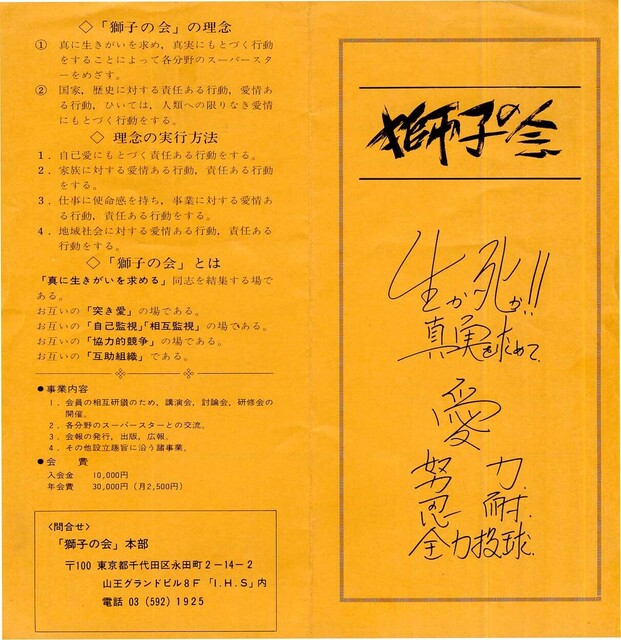 ◇「獅子の会」の理念
① 真に生きがいを求め，真実にもとづく行動
をすることによって各分野のスーパースタ
ーをめざす。
② 国家，歴史に対する責任ある行動，愛情あ
る行動，ひいては，人類への限りなき愛情
にもとづく行動をする。
◇ 理念の実行方法
１．自己愛にもとづく責任ある行動をする。
２．家族に対する愛情ある行動，責任ある行動
をする。
３．仕事に使命感を持ち，事業に対する愛情あ
る行動，責任ある行動をする。
４．地域社会に対する愛情ある行動，責任ある
行動をする。
◇「獅子の会」とは
「真に生きがいを求める」同志を結集する場で
ある。
お互いの「突き愛」の場である。
お互いの「自己監視」「相互監視」の場である。
お互いの「協力的競争」の場である。
お互いの「互助組織」である。
●事業内容
１．会員の相互研鑽のため，講演会，討論会，研修会の
開催。
２．各分野のスーパースターとの交流。
３．会報の発行，出版，広報。
４．その他設立趣旨に沿う諸事業。
●会 費
入会金 10,000円
年会費 30,000円（月2,500円）
〈問合せ〉
「獅子の会」本部
〒100 東京都千代田区永田町２－14－２
山王グランドビル８Ｆ「Ｉ.Ｈ.Ｓ」内
電話 03（592）1925
獅子の会
生か死か!!
真実を求めて
愛
努力
忍耐
全力投球